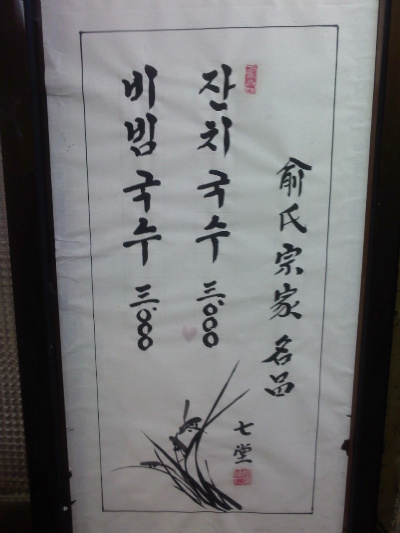 兪氏宗家 名品
잔치국수 三.000
비빔국수 三.000
七堂